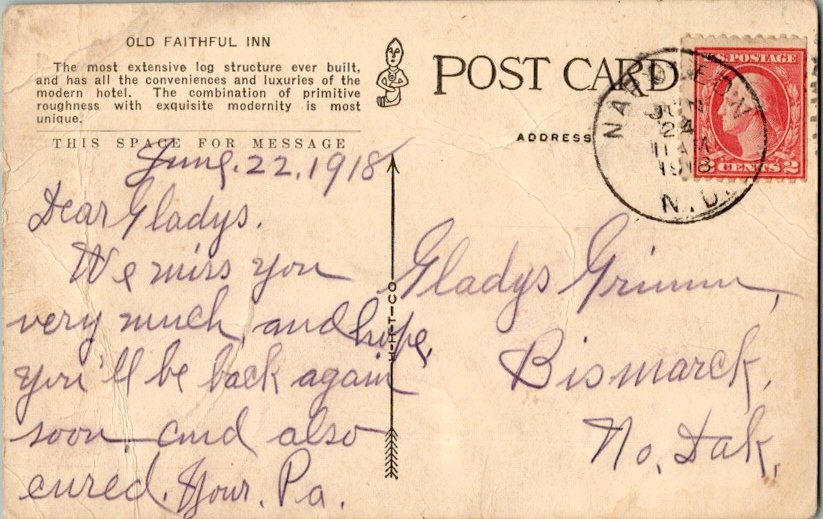 OLD FAITHFUL INN
The most extensive log structure ever built,
and has all the conveniences and luxuries of the
modern hotel. The combination of primitive
roughness with exquisite modernity is most
unique.
THIS SPACE FOR MESSAGE
POST CARD
ADDRESS
U.S. POSTAGE
2 CENTS 2
JUN
24
11 AM
1918
N.D.
June. 22. 1918
Dear Gladys.
We miss you
very much, and hope,
you'll be back again
soon and also
cured. Your. Pa.
H-H-T-CO
Gladys Grimm,
Bismarck,
No. Dak.